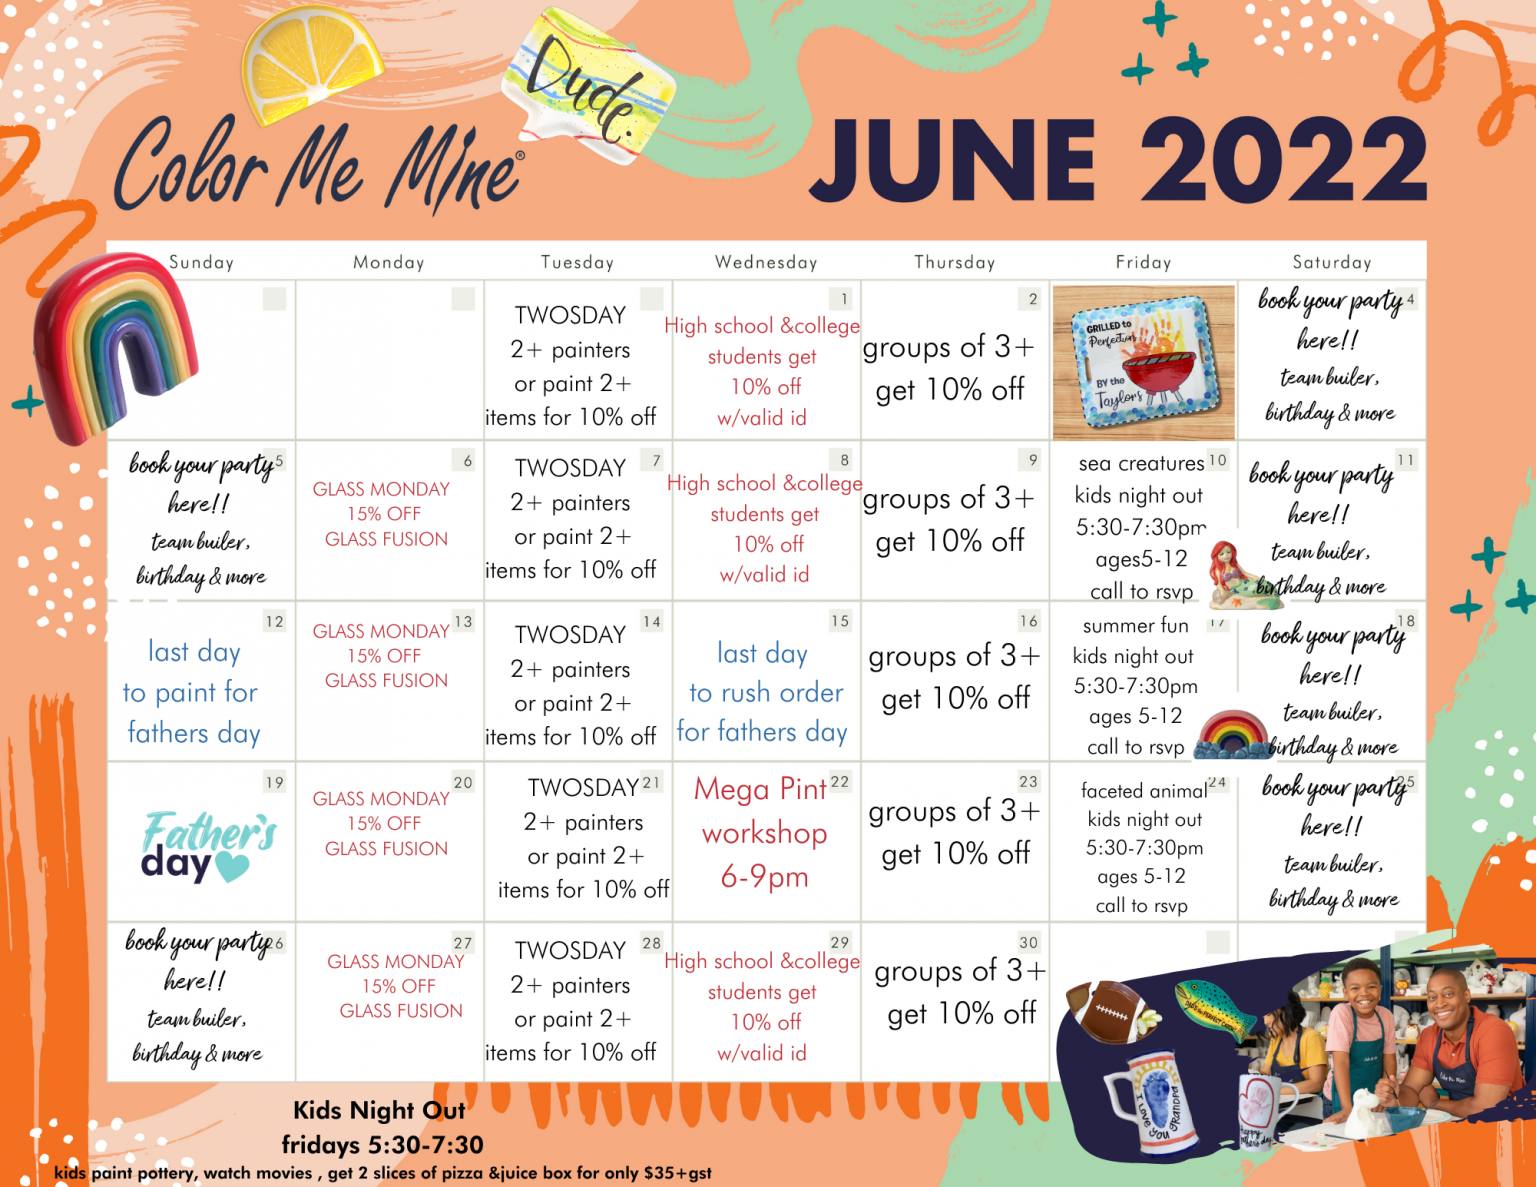 Dude.
Color Me Mine®
JUNE 2022
Sunday Monday Tuesday Wednesday Thursday Friday Saturday
TWOSDAY
2+ painters
or paint 2+
items for 10% off
1
High school &college
students get
10% off
w/valid id
2
groups of 3+
get 10% off
GRILLED to
Perfection
BY the
Taylors
4
book your party
here!!
team builer,
birthday & more
5
book your party
here!!
team builer,
birthday & more
6
GLASS MONDAY
15% OFF
GLASS FUSION
7
TWOSDAY
2+ painters
or paint 2+
items for 10% off
8
High school &college
students get
10% off
w/valid id
9
groups of 3+
get 10% off
10
sea creatures
kids night out
5:30-7:30pm
ages5-12
call to rsvp
11
book your party
here!!
team builer,
birthday & more
12
last day
to paint for
fathers day
13
GLASS MONDAY
15% OFF
GLASS FUSION
14
TWOSDAY
2+ painters
or paint 2+
items for 10% off
15
last day
to rush order
for fathers day
16
groups of 3+
get 10% off
17
summer fun
kids night out
5:30-7:30pm
ages 5-12
call to rsvp
18
book your party
here!!
team builer,
birthday & more
19
Father's
day
20
GLASS MONDAY
15% OFF
GLASS FUSION
21
TWOSDAY
2+ painters
or paint 2+
items for 10% off
22
Mega Pint
workshop
6-9pm
23
groups of 3+
get 10% off
24
faceted animal
kids night out
5:30-7:30pm
ages 5-12
call to rsvp
25
book your party
here!!
team builer,
birthday & more
26
book your party
here!!
team builer,
birthday & more
27
GLASS MONDAY
15% OFF
GLASS FUSION
28
TWOSDAY
2+ painters
or paint 2+
items for 10% off
29
High school &college
students get
10% off
w/valid id
30
groups of 3+
get 10% off
I LOVE YOU GRANDPA
Kids Night Out
fridays 5:30-7:30
kids paint pottery, watch movies , get 2 slices of pizza &juice box for only $35+gst